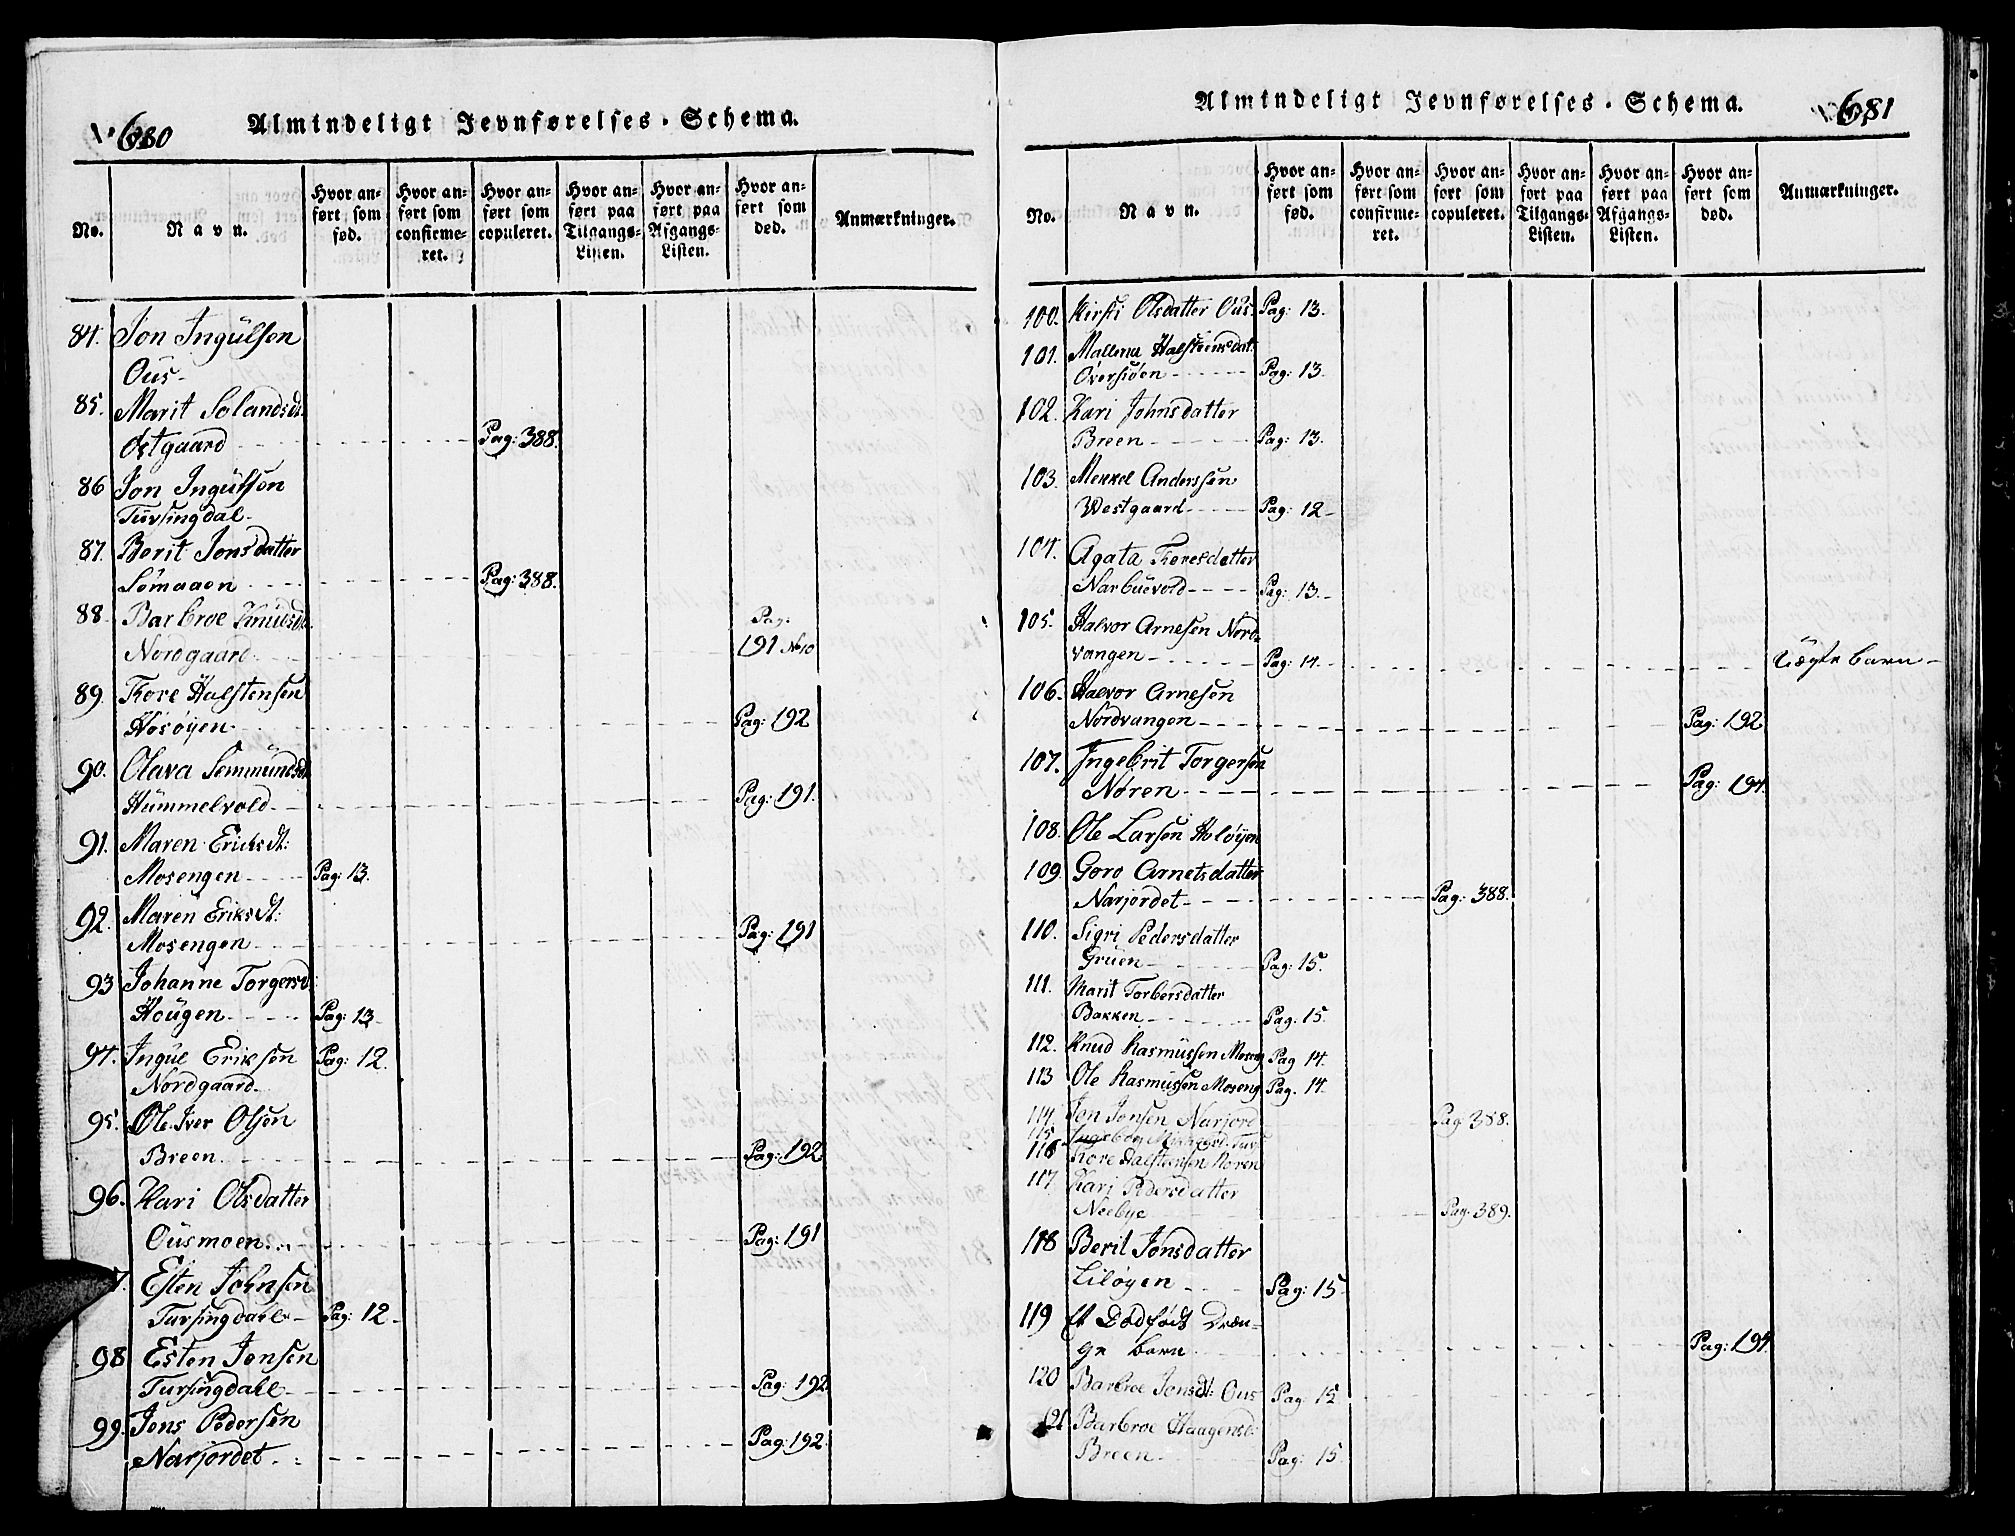 680
Almindeligt Jevnførelses-Schema.
No. Navn. Hvor an-ført som fød. Hvor an-ført som confirme-ret. Hvor an-ført som copuleret. Hvor an-ført paa Tilgangs-Listen. Hvor an-ført paa Afgangs-Listen. Hvor an-ført som død. Anmærkninger.
84. Jon Ingulsen
Ous-
85. Marit Solandsdt.
Østgaard Pag: 388.
86 Jon Ingulsen
Tursingdal-
87. Berit Jonsdatter
Sømaaen Pag: 388.
88 Barbroe Knudsdt. Pag.
Nordgaard 191 No 10
89. Tore Halstensen
Hosøyen Pag: 192
90. Olava Semmundsdt
Hummelvold Pag: 191.
91. Maren Eriksdt:
Mosengen Pag: 13.
92. Maren Eriksdt:
Mosengen Pag: 191
93 Johanne Torgersd:
Hougen Pag: 13-
94. Ingul Eriksen Pag: 12.
Nordgaard-
95. Ole Iver Olsen
Breen Pag: 192
96. Kari Olsdatter
Ousmoen Pag: 191
7. Esten Johnsen
Tursingdahl Pag: 12-
98 Esten Jonsen
Tursingdahl Pag: 192.
99. Jons Pedersen
Narjordet Pag: 192.
Almindeligt Jevnførelses-Schema.
681
No. Navn. Hvor an-ført som fød. Hvor an-ført som confirme-ret. Hvor an-ført som copuleret. Hvor an-ført paa Tilgangs-Listen. Hvor an-ført paa Afgangs-Listen. Hvor an-ført som død. Anmærkninger.
100. Kirsti Olsdatter Ous Pag: 13.
101. Mallena Halsteensdat:
Øversiøen Pag: 13.
102. Kari Johnsdatter
Breen Pag: 13.
103. Mekkel Anderssen
Westgaard Pag: 12-
104. Agata Toresdatter
Narbuevold Pag: 13.-
105. Halvor Arnesen Nord-
vangen Pag: 14. Uægte barn-
106. Halvor Arnesen
Nordvangen Pag: 192
107. Ingebrit Torgersen
Nøren Pag: 194.
108. Ole Larsen Holøyen
109. Goro Arnetsdatter
Narjordet Pag: 388.
110. Sigri Pedersdatter
Gruen Pag: 15.
111. Marit Torbersdatter
Bakken Pag. 15.
112. Knud Rasmussen Moseng Pag 14.
113 Ole Rasmussen Moseng Pag. 14.
114. Jon Jonsen Narjord Pag 388.
115
116 Tore Halsteensen Noren
117 Kari Pedersdatter
Neebye Pag. 389.
118 Beril Jonsdatter
Liløyen Pag: 15-
119 Et Dødfødt Dræn-
ge barn Pag: 194
120 Barbroe Jonsdt: Ous Pag: 15
121 Barbroe Haagensd:
Breen Pag: 15